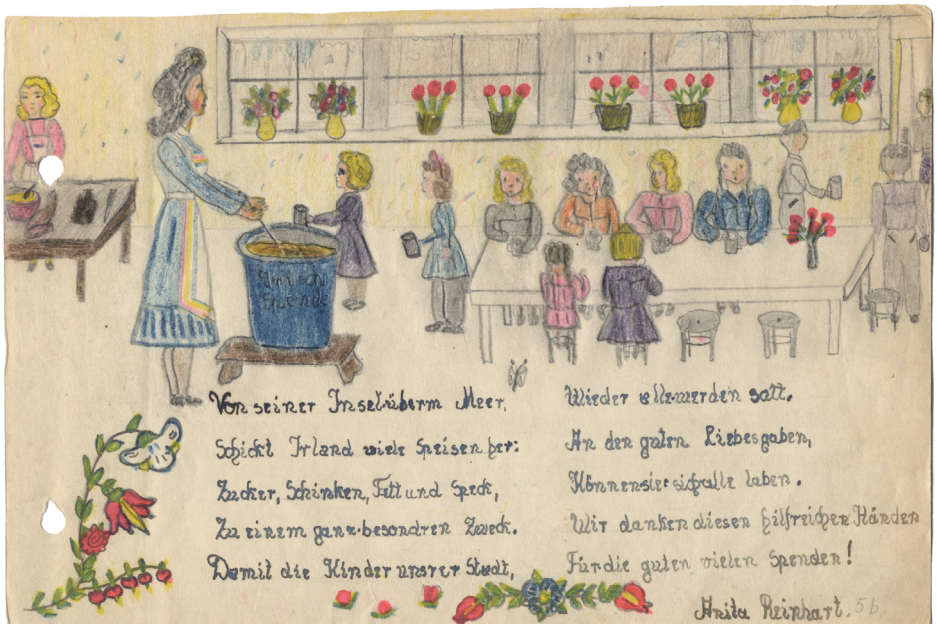 Irische
Spende
Von seiner Insel überm Meer,
Schickt Irland viele Speisen her:
Zucker, Schinken, Fett und Speck,
Zu einem ganz besondren Zweck.
Damit die Kinder unsrer Stadt,
Wieder alle werden satt.
An den guten Liebesgaben,
Können sie sich alle laben.
Wir danken diesen hilfreichen Händen
Für die guten vielen Spenden!
Anita Reinhart. 5b